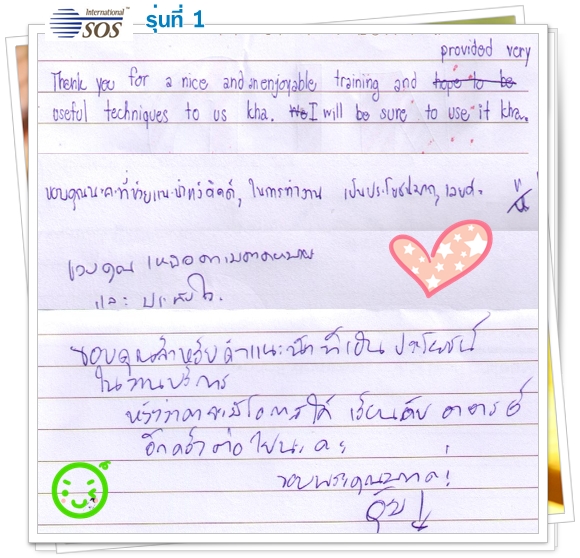 International
SOS
รุ่นที่ 1
provided very
Thank you for a nice and an enjoyable training and hope to be
useful techniques to us kha. We I will be sure to use it kha.
ขอบคุณนะคะที่ช่วยแนะนำทริคดีๆ ในการทำงาน เป็นประโยชน์มากๆ เลยค่ะ
ขอบคุณ
และ ประทับใจ.
ขอบคุณสำหรับคำแนะนำที่เป็นประโยชน์
ในงานบริการ
หวังว่าคงจะมีโอกาสได้ เรียนกับ อาจารย์
อีกครั้งต่อไปนะคะ !
ขอบพระคุณมากค่ะ!